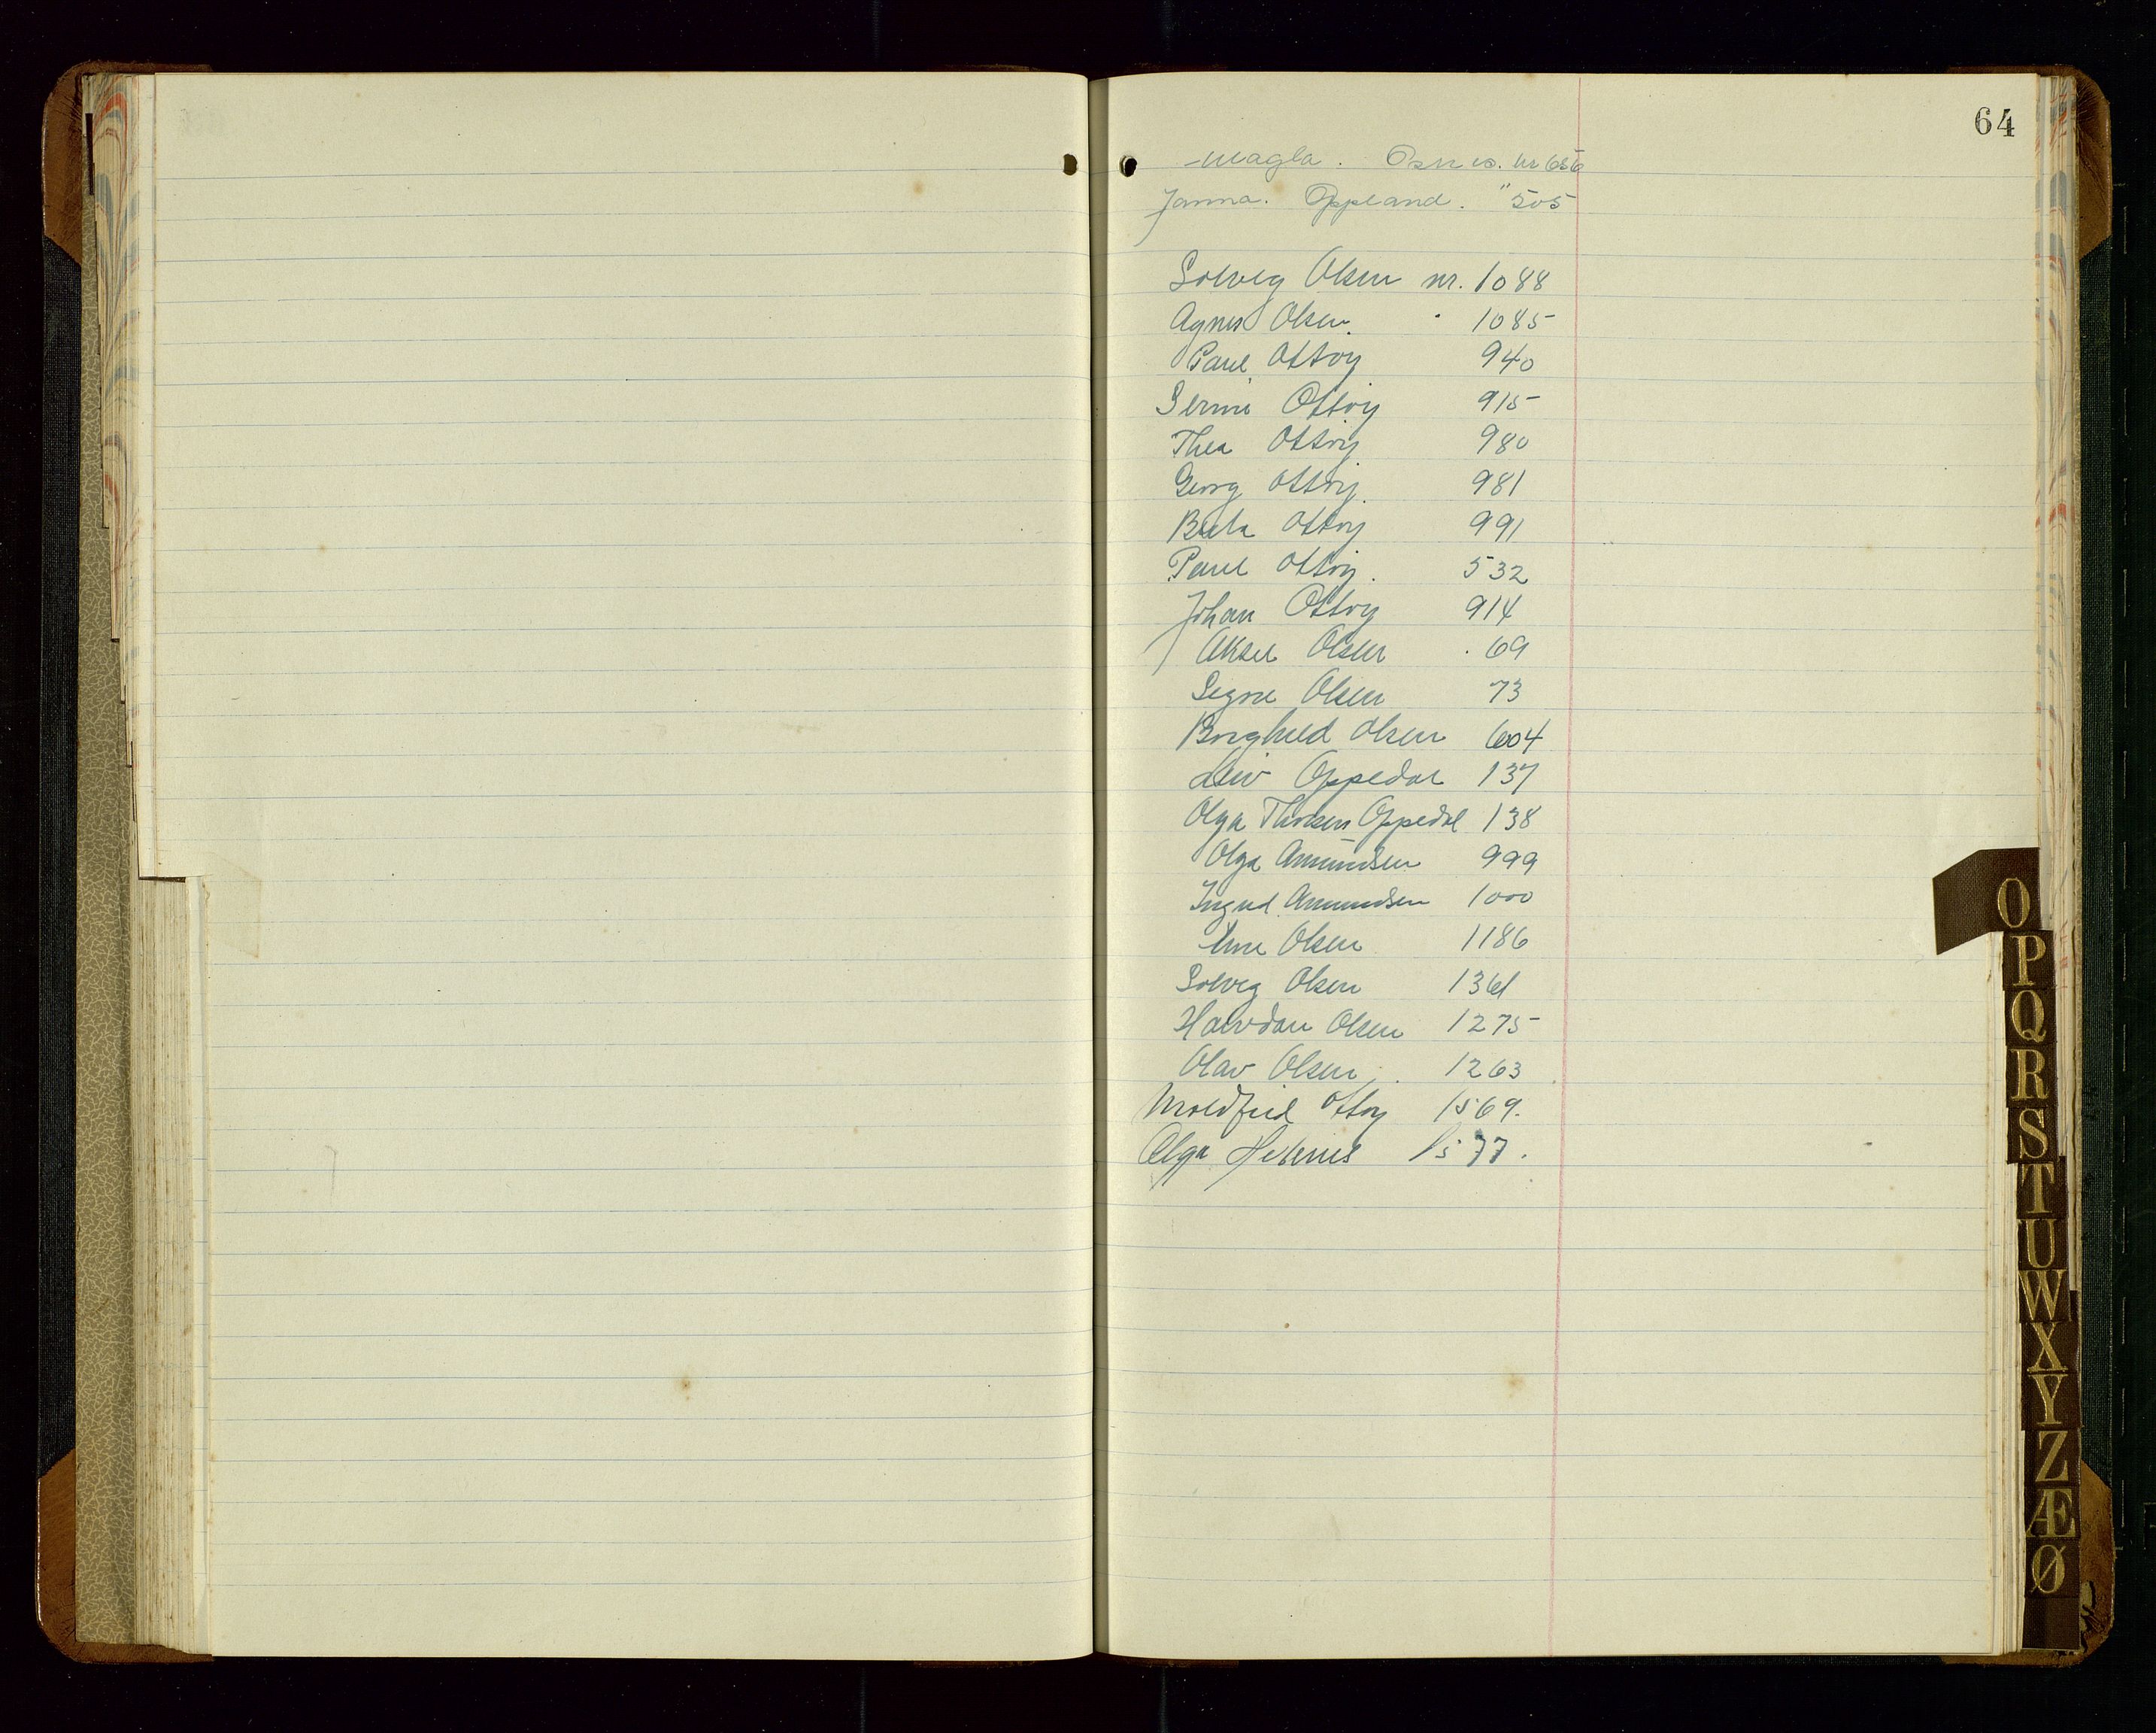 64
Magla. Osnes. nr 656
Janna. Oppland. " 505
Solveig Olsen nr. 1088
Agnes Olsen. " 1085
Paul Ottøy 940
Ottøy 915
Thea Ottøy 980
Georg Ottøy. 981
Ottøy 991
Paul Ottøy. 532
Johan Ottøy 914
Aksel Olsen . 69
Signe Olsen 73
Borghild Olsen 604
Liv Oppedal 137
Olga Thorsen Oppedal 138
Olga Amundsen 999
Ingrid Amundsen 1000
Olsen 1186
Solveg Olsen 1361
Halvdan Olsen 1275
Olav Olsen. 1263
Moldfrid Ottøy 1569.
Olga 1577.
O
P
Q
R
S
T
U
W
X
Y
Z
Æ
Ø